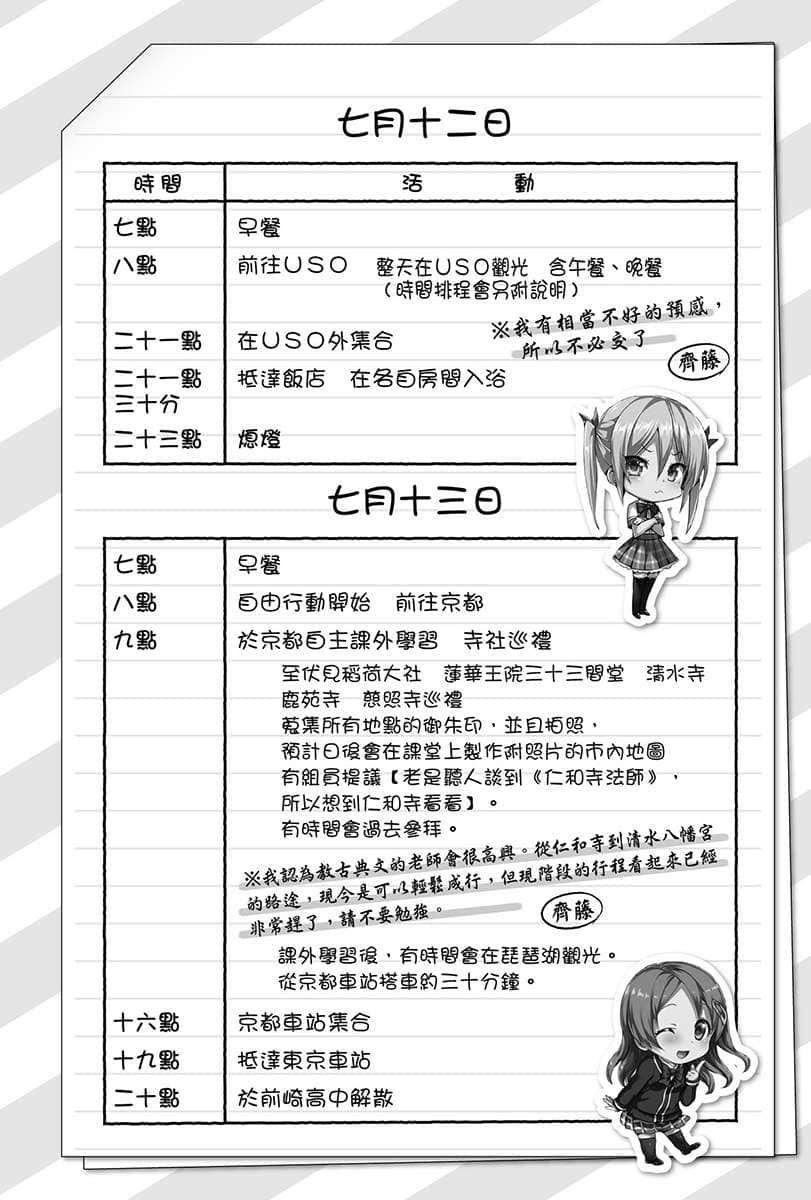 七月十二日
時間 活動
七點 早餐
八點 前往ＵＳＯ 整天在ＵＳＯ觀光 含午餐、晚餐
（時間排程會另附說明）
※我有相當不好的預感，
所以不必交了
齊藤
二十一點 在ＵＳＯ外集合
二十一點 抵達飯店 在各自房間入浴
三十分
二十三點 熄燈
七月十三日
七點 早餐
八點 自由行動開始 前往京都
九點 於京都自主課外學習 寺社巡禮
至伏見稻荷大社 蓮華王院三十三間堂 清水寺
鹿苑寺 慈照寺巡禮
蒐集所有地點的御朱印，並且拍照，
預計日後會在課堂上製作附照片的市內地圖
有組員提議【老是聽人談到《仁和寺法師》，
所以想到仁和寺看看】。
有時間會過去參拜。
※我認為教古典文的老師會很高興。從仁和寺到清水八幡宮
的路途，現今是可以輕鬆成行，但現階段的行程看起來已經
非常趕了，請不要勉強。
齊藤
課外學習後，有時間會在琵琶湖觀光。
從京都車站搭車約三十分鐘。
十六點 京都車站集合
十九點 抵達東京車站
二十點 於前崎高中解散